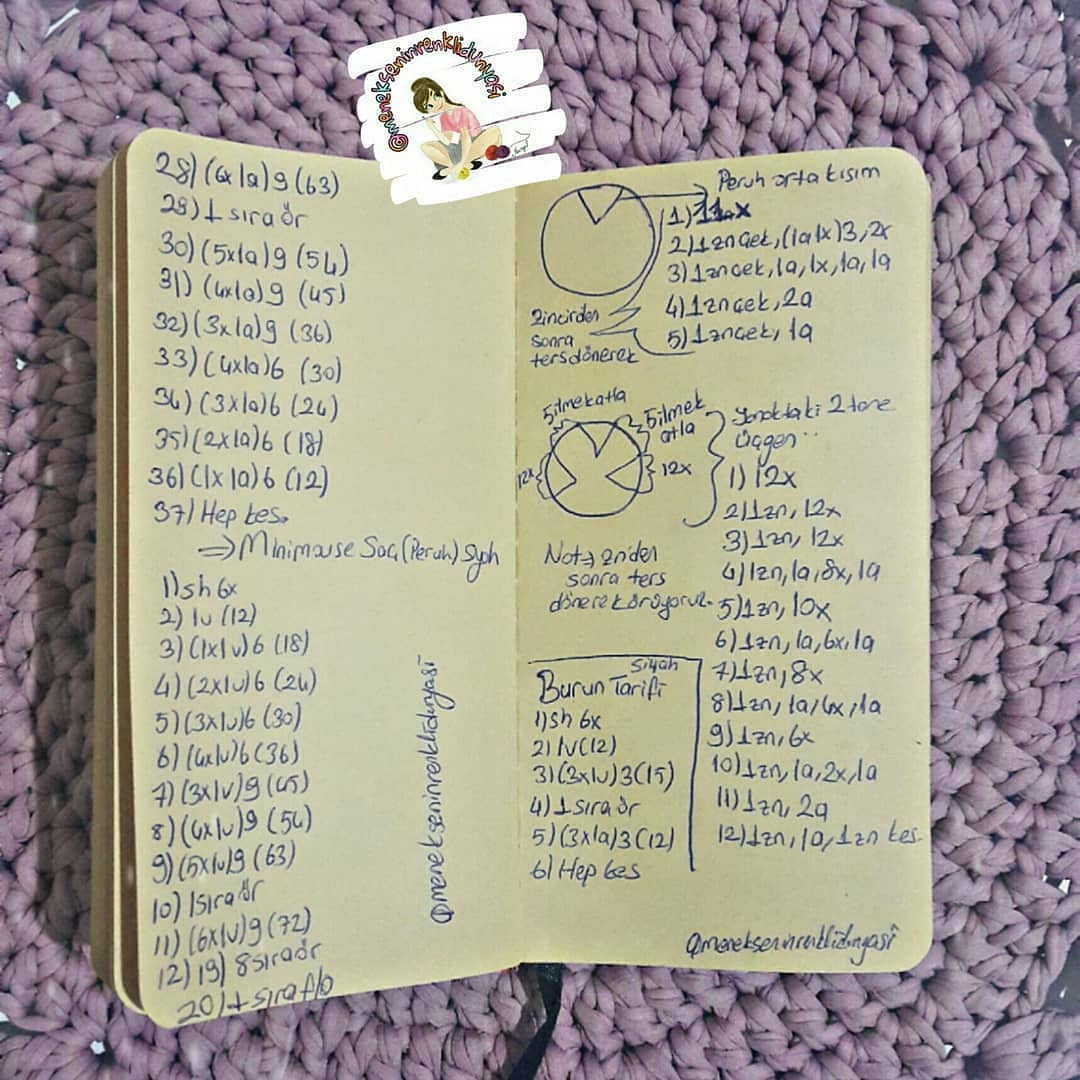 @menekseninrenklidunyasi
28) (6x1a)9 (63)
29) 1 sıra ör
30) (5x1a)9 (54)
31) (4x1a)9 (45)
32) (3x1a)9 (36)
33) (4x1a)6 (30)
34) (3x1a)6 (24)
35) (2x1a)6 (18)
36) (1x1a)6 (12)
37) Hep kes.
⇒ Minimouse Saçı (Peruk) Syh
1) sh 6x
2) 1v (12)
3) (1x1v)6 (18)
4) (2x1v)6 (24)
5) (3x1v)6 (30)
6) (4x1v)6 (36)
7) (3x1v)9 (45)
8) (4x1v)9 (54)
9) (5x1v)9 (63)
10) 1 sıra ör
11) (6x1v)9 (72)
12) 19) 8 sıra ör
20) 1 sıra flo
@menekseninrenklidunyasi
Peruk orta kısım
1) 11x
2) 1 zn çek, (1a1x)3, 2x
3) 1zn çek, 1a, 1x, 1a, 1a
4) 1zn çek, 2a
5) 1zn çek, 1a
Zincirden
sonra
ters dönerek
5 ilmek atla
5 ilmek
atla
12x
12x
Yanaktaki 2 tane
üçgen
1) 12x
2) 1zn, 12x
3) 1zn, 12x
4) 1zn, 1a, 8x, 1a
5) 1zn, 10x
6) 1zn, 1a, 6x, 1a
7) 1zn, 8x
8) 1zn, 1a, 4x, 1a
9) 1zn, 6x
10) 1zn, 1a, 2x, 1a
11) 1zn, 2a
12) 1zn, 1a, 1zn kes
Not → zn'den
sonra ters
dönerek örüyoruz.
Siyah
Burun Tarifi
1) sh 6x
2) 1v (12)
3) (3x1v)3 (15)
4) 1 sıra ör
5) (3x1a)3 (12)
6) Hep kes
@menekseninrenklidunyasi